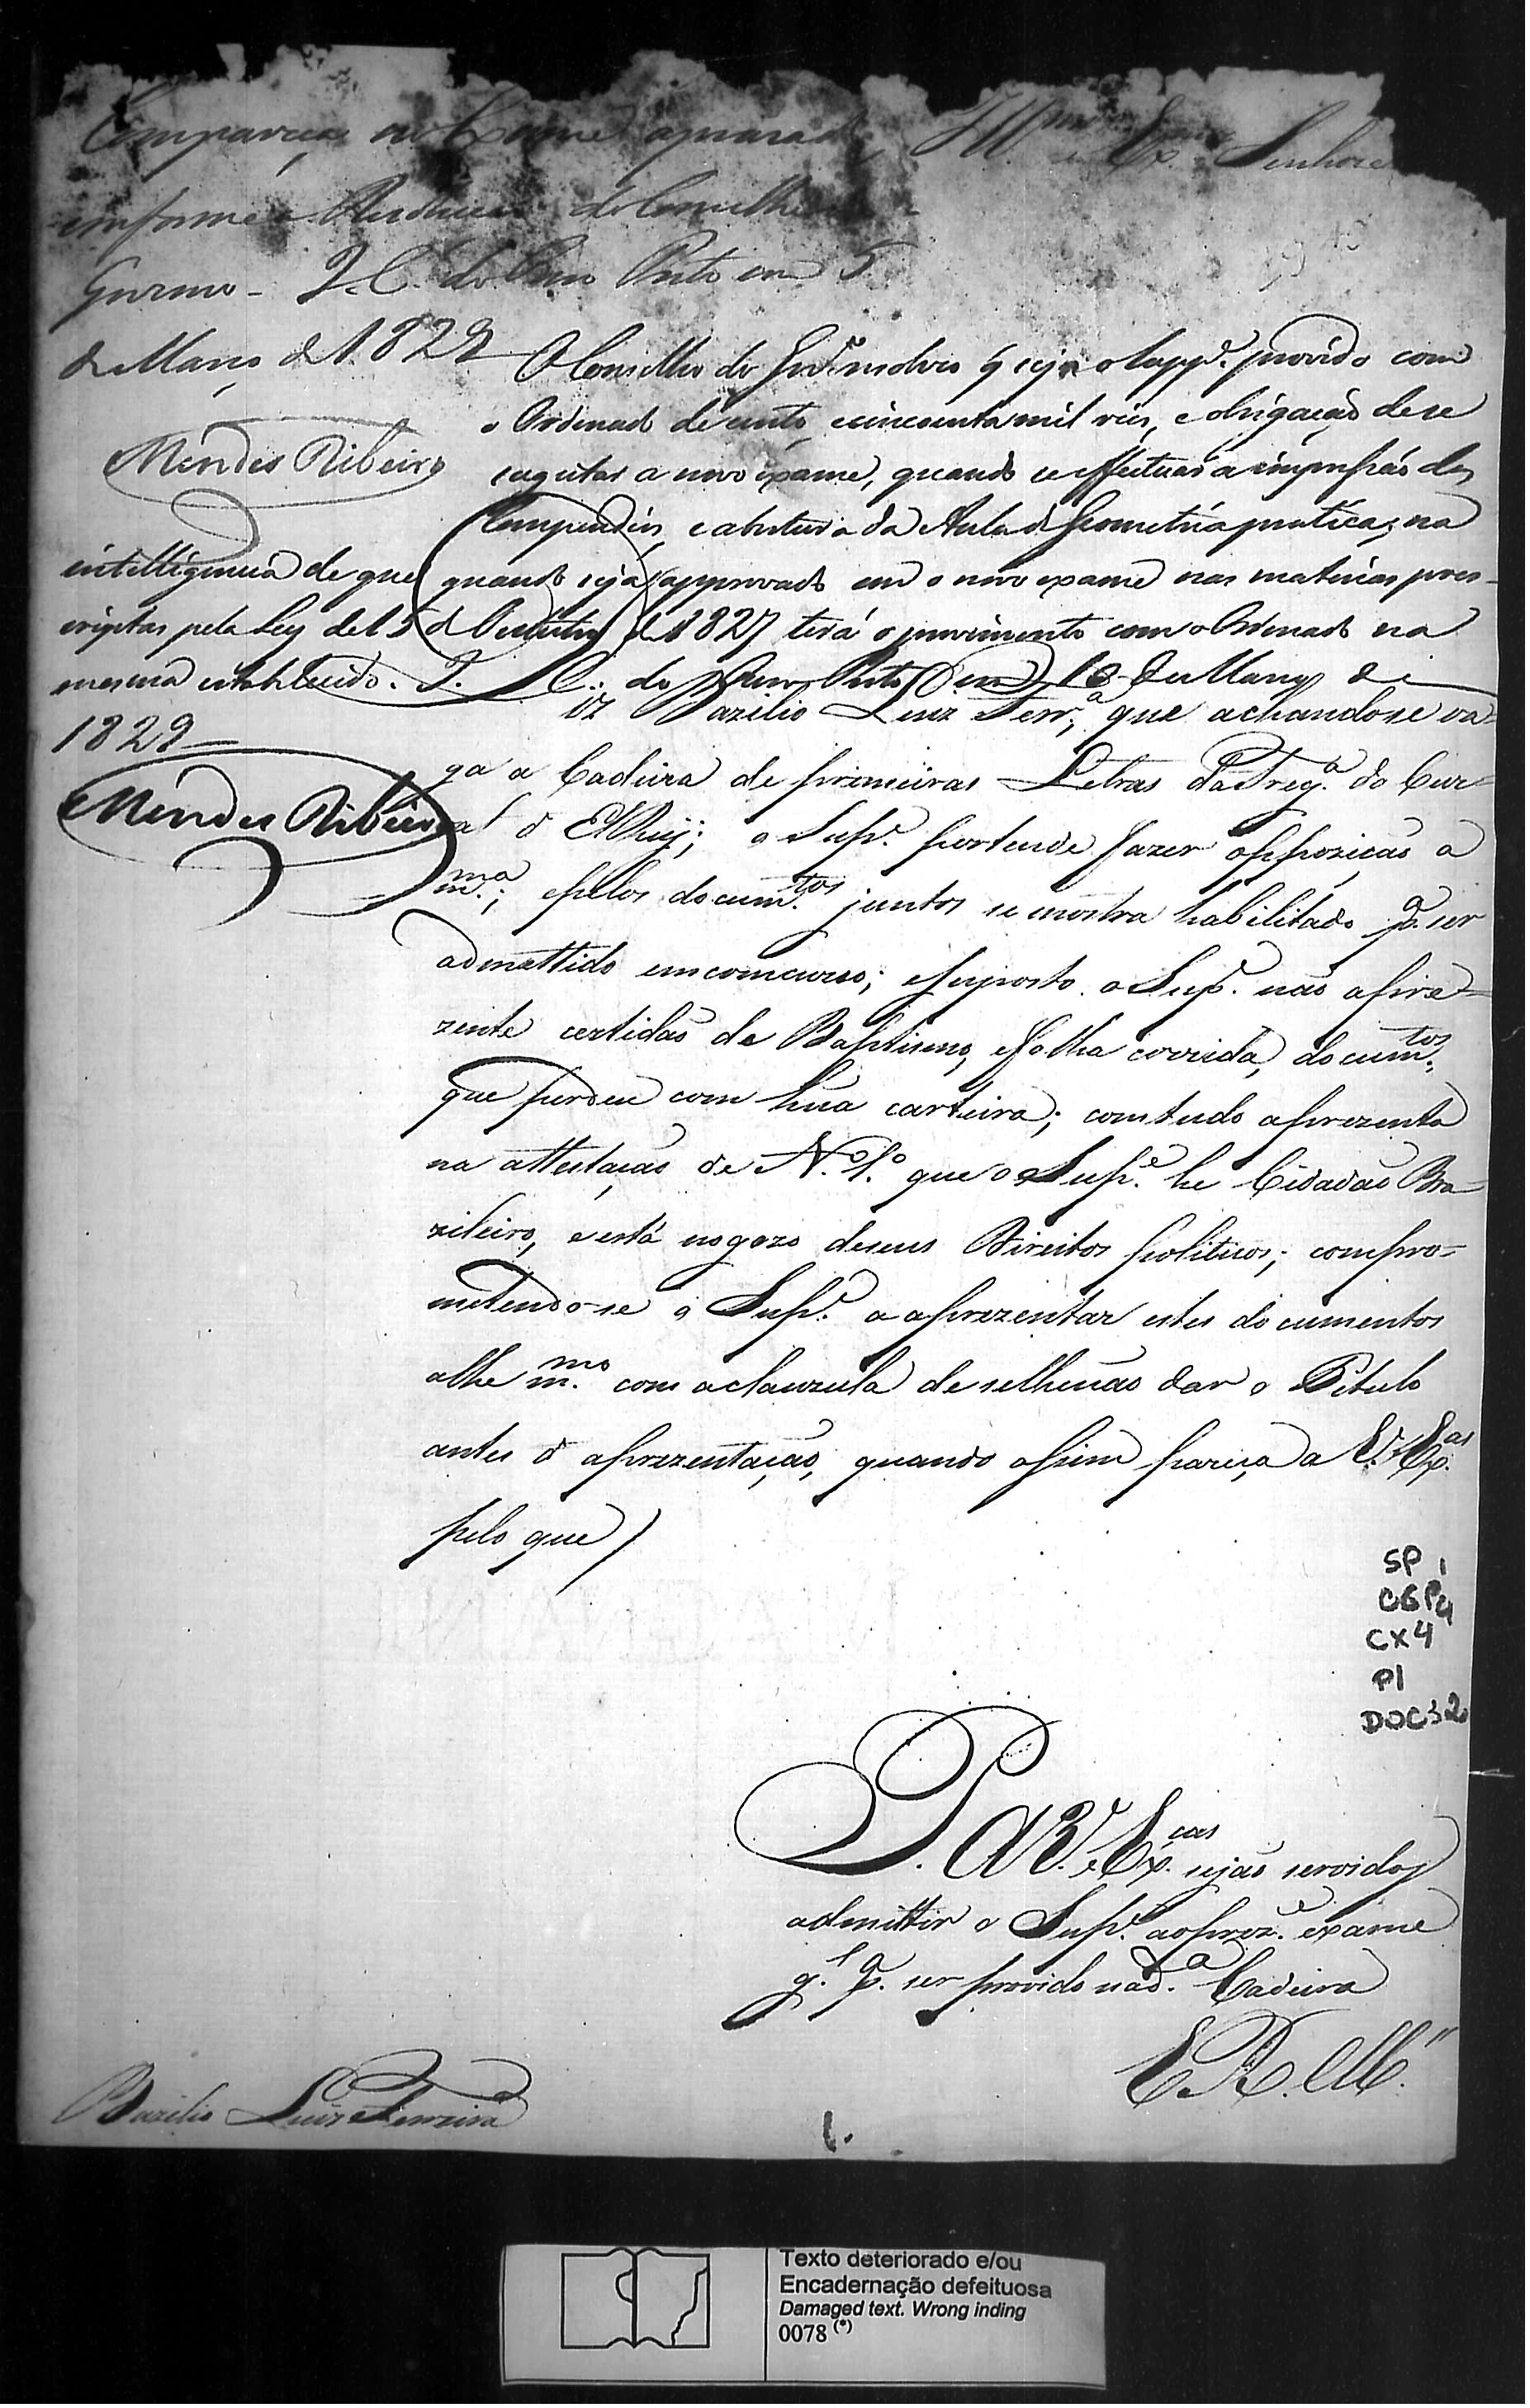 Compareça ao Exame aprasado
conforme a Resolução do Conselho do
Governo - I. C. do Ouro Preto em 5
de Março de 1829
Mendes Ribeiro
Ill.mos e Ex.mos Senhores
O Conselho do Gov.o resolveo q seja o Supp.e provido com
o Ordenado de cento e cincoenta mil reis, e obrigação de se
sugeitar a novo exame, quando se effectuar a impressão dos
Compendios, e abertura da Aula de Geometria pratica; na
intelligencia de que quando seja approvado em o novo exame nas materias pres-
criptas pela Ley de 15 d Outubro de 1827 terá o provimento com o Ordenado na
mesma estabelecido. I. C. do Ouro Preto em 13 de Março de
1829
Mendes Ribeiro
Diz Bazilio Luiz Ferr.a, que achandose va-
ga a Cadeira de primeiras Letras da Freg.a do Cur-
ral d ElRey; o Sup.e pertende fazer oppozição a
m.ma; e pelos docum.tos juntos se mostra habilitado p.a ser
admettido em concurso; e suposto o Sup.e não apre-
zente certidão de Baptismo, e folha corrida, docum.tos
que perdeu com hua carteira; comtudo aprezenta
na attestação de N.o 1.o que o Sup.e he Cidadão Bra-
zileiro, e está no gozo de seus Direitos politicos; compro-
metendo-se o Sup.e a aprezentar estes documentos
alhe m.mo com a clauzula de selhe não dar o Titulo
antes d aprezentação, quando assim pareça a V. Ex.as
pelo que
P. A V.V. Ex.cas sejão servidos
admittir o Sup.e ao prez.e exame
g.l p.a ser provido na d.a Cadeira
E.R.M.
Bazilio Luiz Ferreira
1.
SP 1
CGP4
CX4
P1
DOC32
Texto deteriorado e/ou
Encadernação defeituosa
Damaged text. Wrong inding
0078 (*)